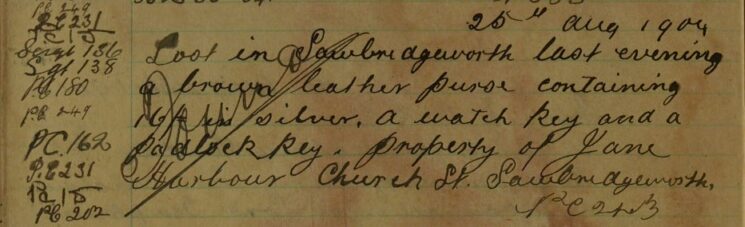 PC 249
PC 231
Sergt 136
Sgt 138
PC 180
PC 249
PC. 162
P.C 231
PC 202
25th Aug 1904
Lost in Sawbridgeworth last evening
a brown leather purse containing
in silver, a watch key and a
padlock key. property of Jane
Harbour Church St. Sawbridgeworth.
PC 243
Found